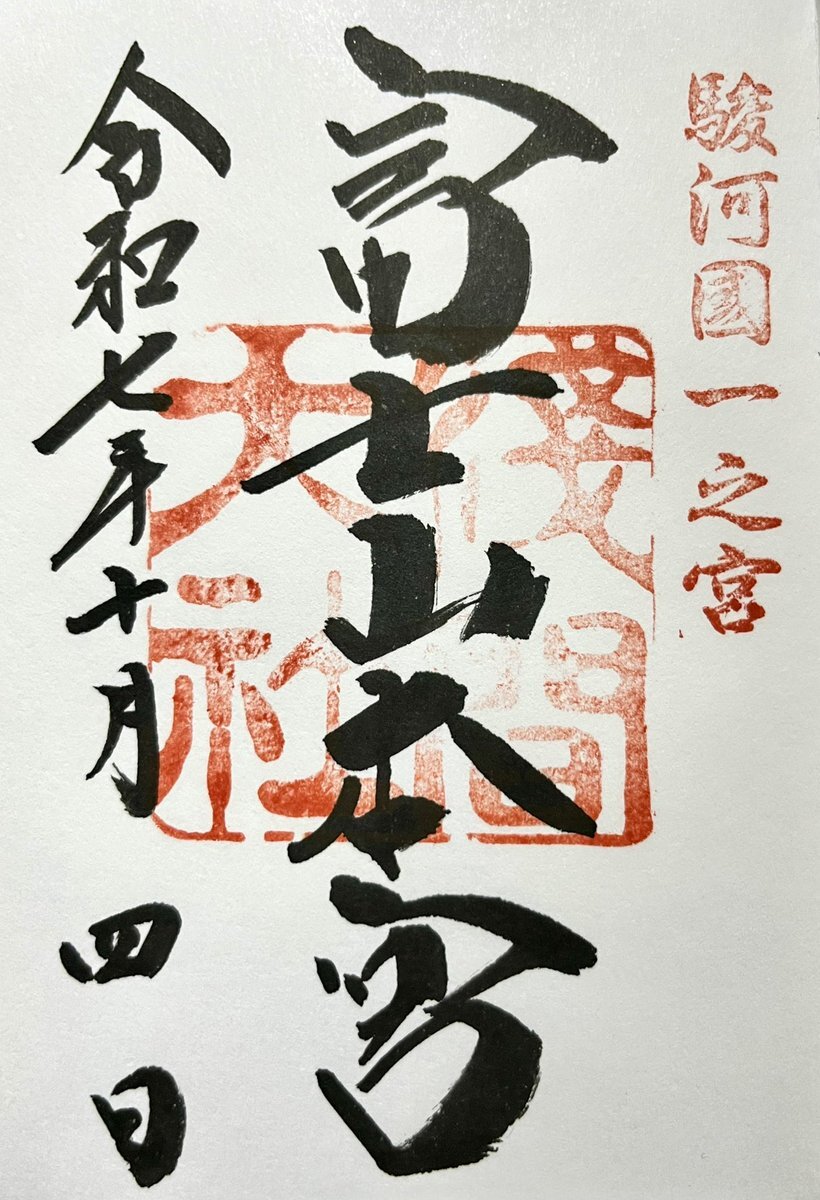 駿河國一之宮
富士山本宮
浅間
大社
令和七年十月四日